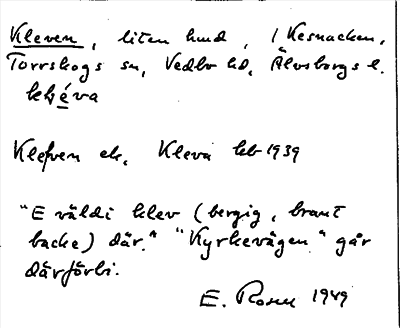 Kleven, liten hmd, i Kesnacken,
Torrskogs sn, Vedbo hd, Älvsborgs l.
kl̥éva
Kleven ek, Kleva kb 1939
"E väldi klev (bergig, brant
backe) där." "Kyrkevägen" går
därförbi.
E. Rosen 1949